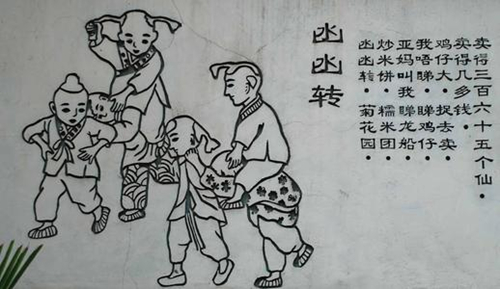 凼凼转
凼凼转·菊花园
炒米饼·糯米团·
亚妈叫我睇龙船·
我唔睇·睇鸡仔·
鸡仔大·捉去卖·
卖得几多钱·
卖得三百六十五个仙·